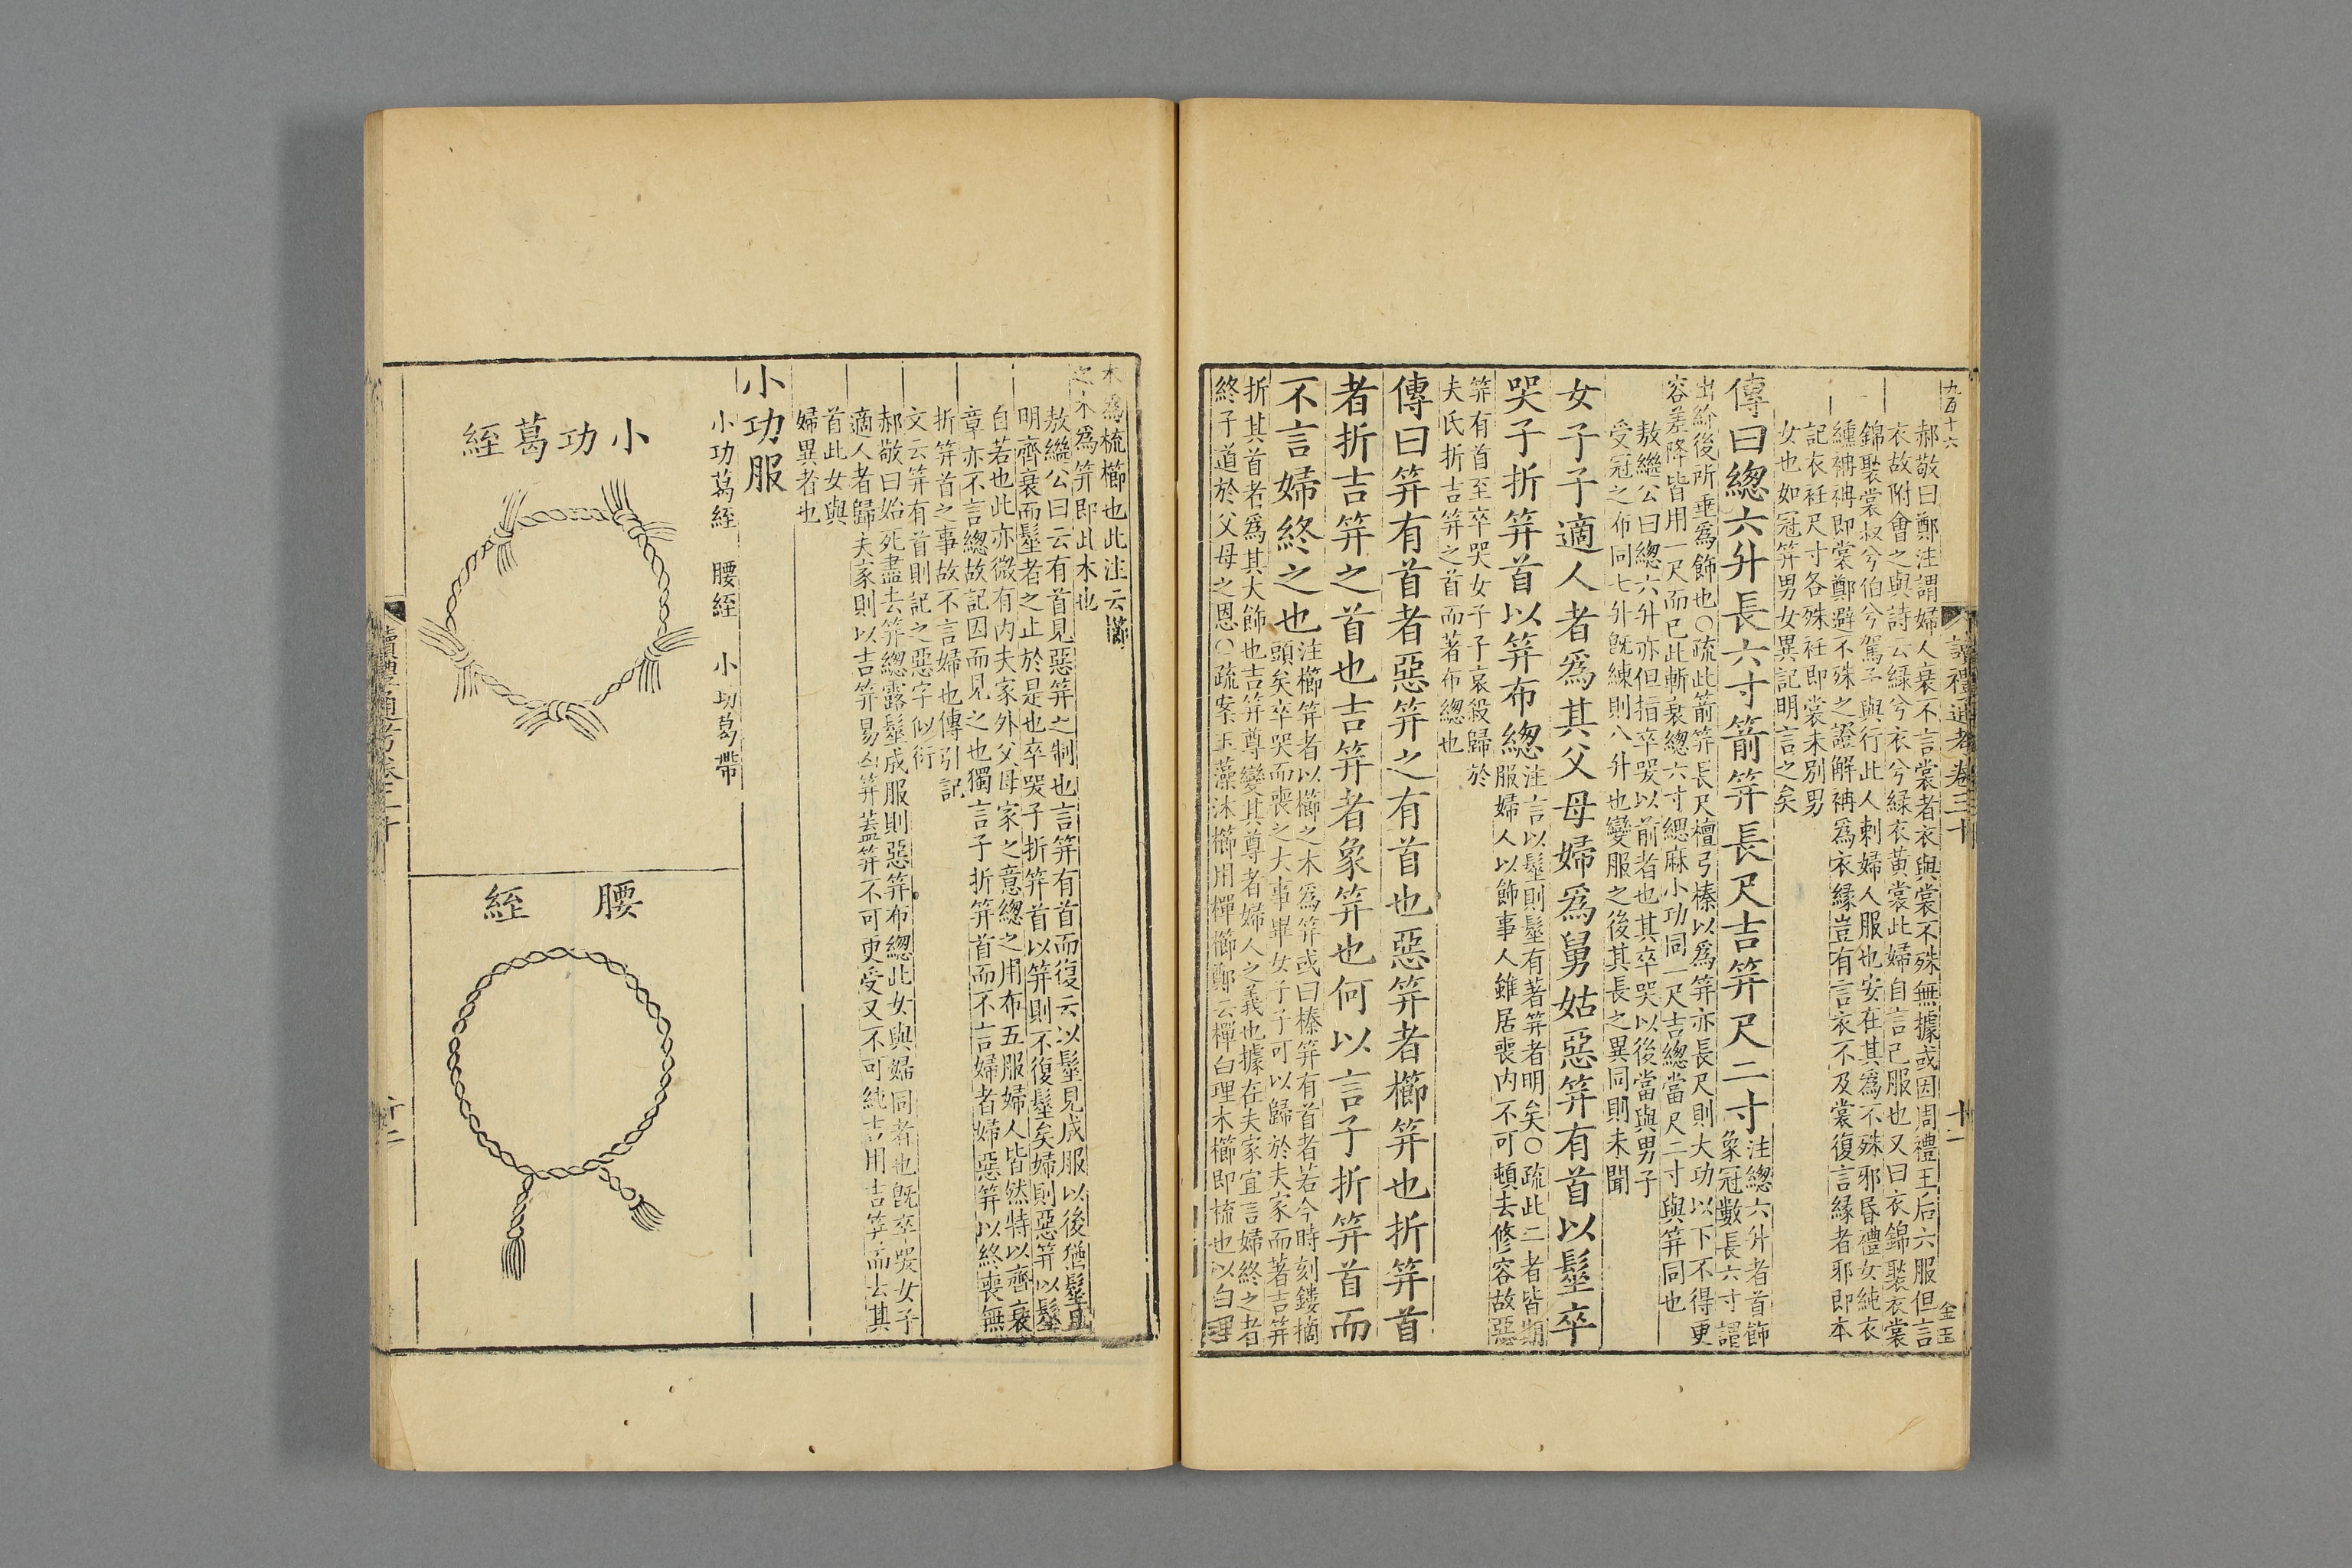 九百十六
郝敬曰鄭注謂婦人衰不言裳者衣與裳不殊無據或因周禮王后六服但言
衣故附會之與詩云緑兮衣兮緑衣黄裳此婦自言己服也又曰衣錦褧衣裳
錦褧裳叔兮伯兮駕予與行此人刺婦人服也安在其爲不殊邪昏禮女純衣
纁袡袡即裳鄭避不殊之證解袡爲衣縁豈有言衣不及裳復言縁者耶即本
記衣衽尺寸各殊衽即裳未別男
女也如冠笄男女異記明言之矣
傳曰緫六升長六寸箭笄長尺吉笄尺二寸
注緫六升者首飾
象冠數長六寸謂
出紒後所垂爲飾也○疏此箭笄長尺檀弓榛以爲笄亦長尺則大功以下不得更
容差降皆用一尺而已此斬衰緫六寸緦麻小功同一尺吉緫當尺二寸與笄同也
敖繼公曰緫六升亦但指卒哭以前者也其卒哭以後當與男子
受冠之布同七升旣練則八升也變服之後其長之異同則未聞
女子子適人者爲其父母婦爲舅姑惡笄有首以髽卒
哭子折笄首以笄布緫
注言以髽則髽有著笄者明矣○疏此二者皆期
服婦人以飾事人雖居喪内不可頓去修容故惡
笄有首至卒哭女子子哀殺歸於
夫氏折吉笄之首而著布緫也
傳曰笄有首者惡笄之有首也惡笄者櫛笄也折笄首
者折吉笄之首也吉笄者象笄也何以言子折笄首而
不言婦終之也
注櫛笄者以櫛之木爲笄或曰榛笄有首者若今時刻鏤摘
頭矣卒哭而喪之大事畢女子子可以歸於夫家而著吉笄
折其首者爲其大飾也吉笄尊變其尊者婦人之義也據在夫家宜言婦終之者
終子道於父母之恩○疏案玉藻沐櫛用樿櫛鄭云樿白理木櫛即梳也以白理
讀禮通考卷三十
十二
金玉
木爲梳櫛也此注云櫛
之木爲笄即此木也
敖繼公曰云有首見惡笄之制也言笄有首而復云以髽見成服以後猶髽且
明齊衰而髽者之止於是也卒哭子折笄首以笄則不復髽矣婦則惡笄以髽
自若也此亦微有内夫家外父母家之意緫之用布五服婦人皆然特以齊衰
章亦不言緫故記因而見之也獨言子折笄首而不言婦者婦惡笄以終喪無
折笄首之事故不言婦也傳引記
文云笄有首則記之惡字似衍
郝敬曰始死盡去笄緫露髽成服則惡笄布緫此女與婦同者也旣卒哭女子
適人者歸夫家則以吉笄易凶笄蓋笄不可更受又不可純吉用吉笄而去其
首此女與
婦異者也
小功服
小功葛絰 腰絰 小功葛帶
小功葛絰
腰絰